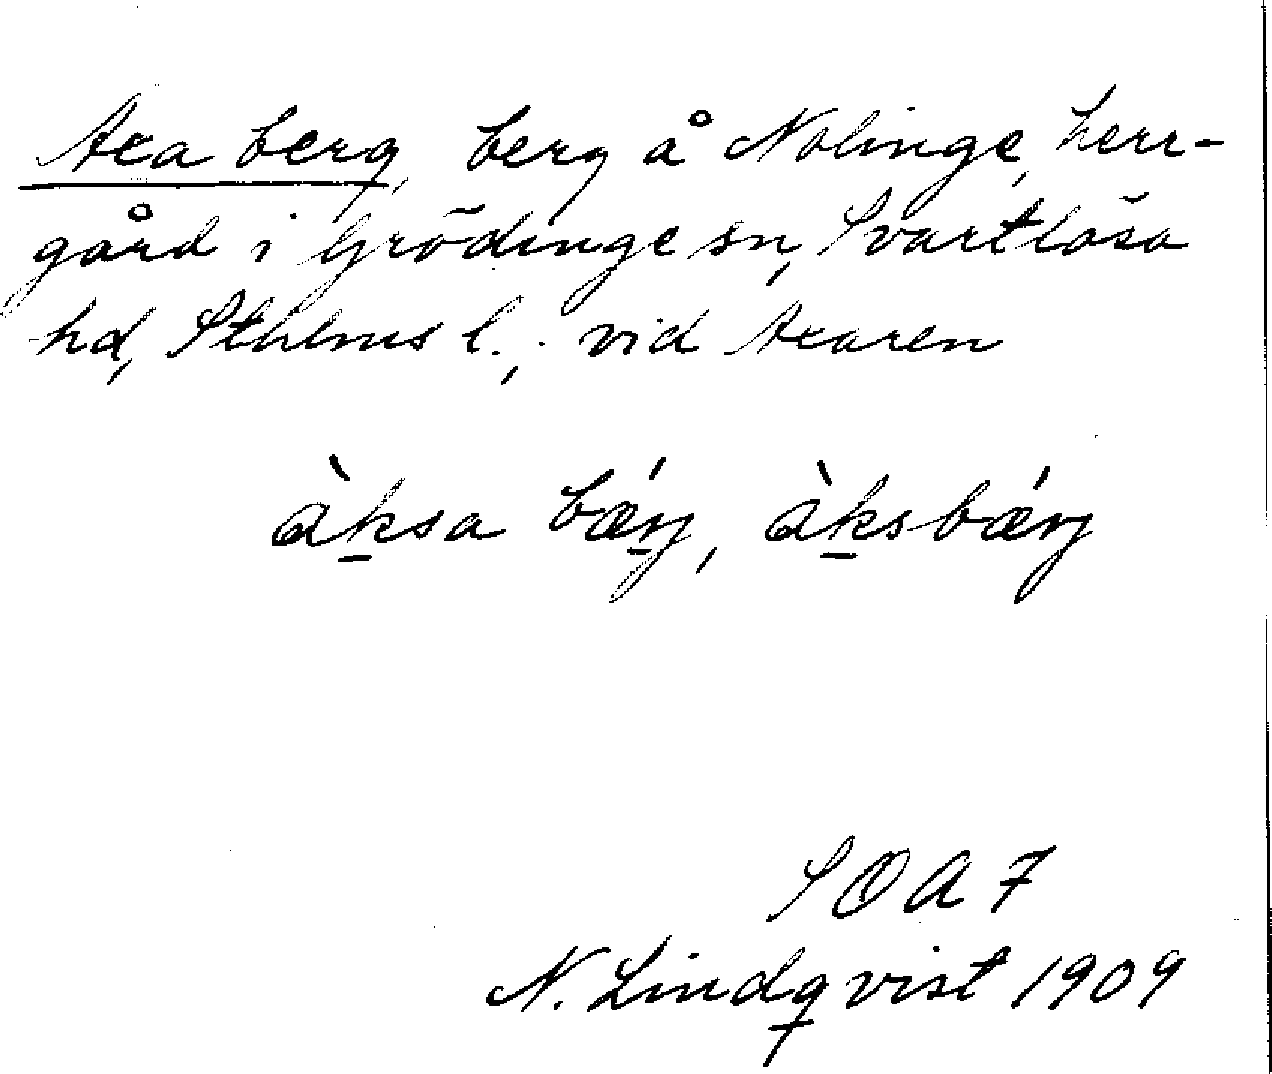 Axa berg, berg å Nolinge, herr-
gård i Grödinge sn, Svartlösa
hd, Sthlms l., vid Axaren
àksa bǽrj, àksbǽrj
SOA 7
N. Lindqvist 1909